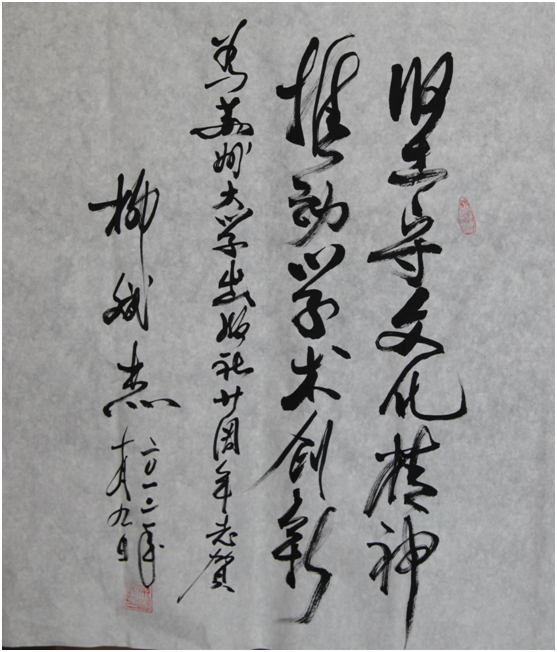 坚守文化精神
推动学术创新
为苏州大学出版社廿周年志贺
柳斌杰
二〇一二年
十月九日